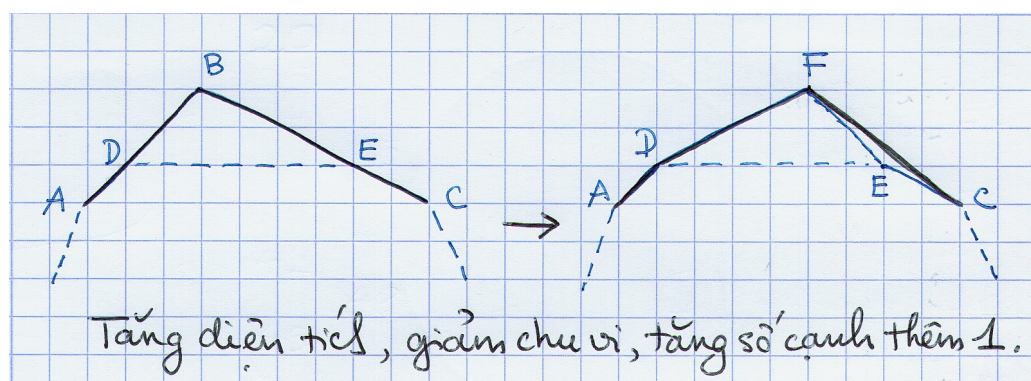 B F
D E D
A C A E C
Tăng diện tích, giảm chu vi, tăng số cạnh thêm 1.